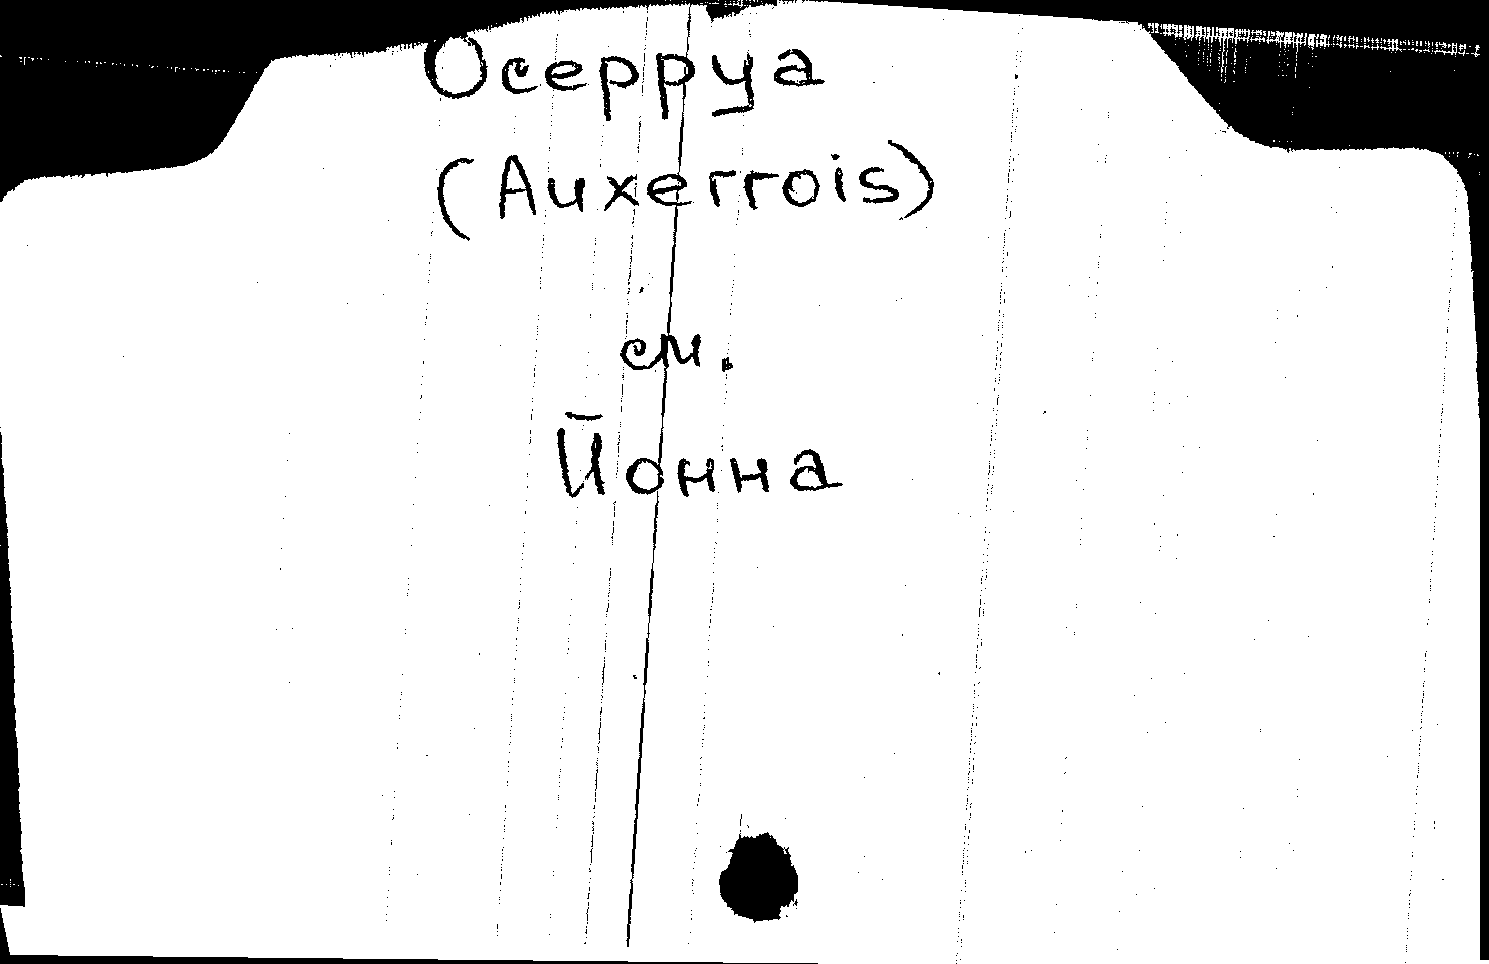 Осерруа
(Auxerrois)
см.
Йонна